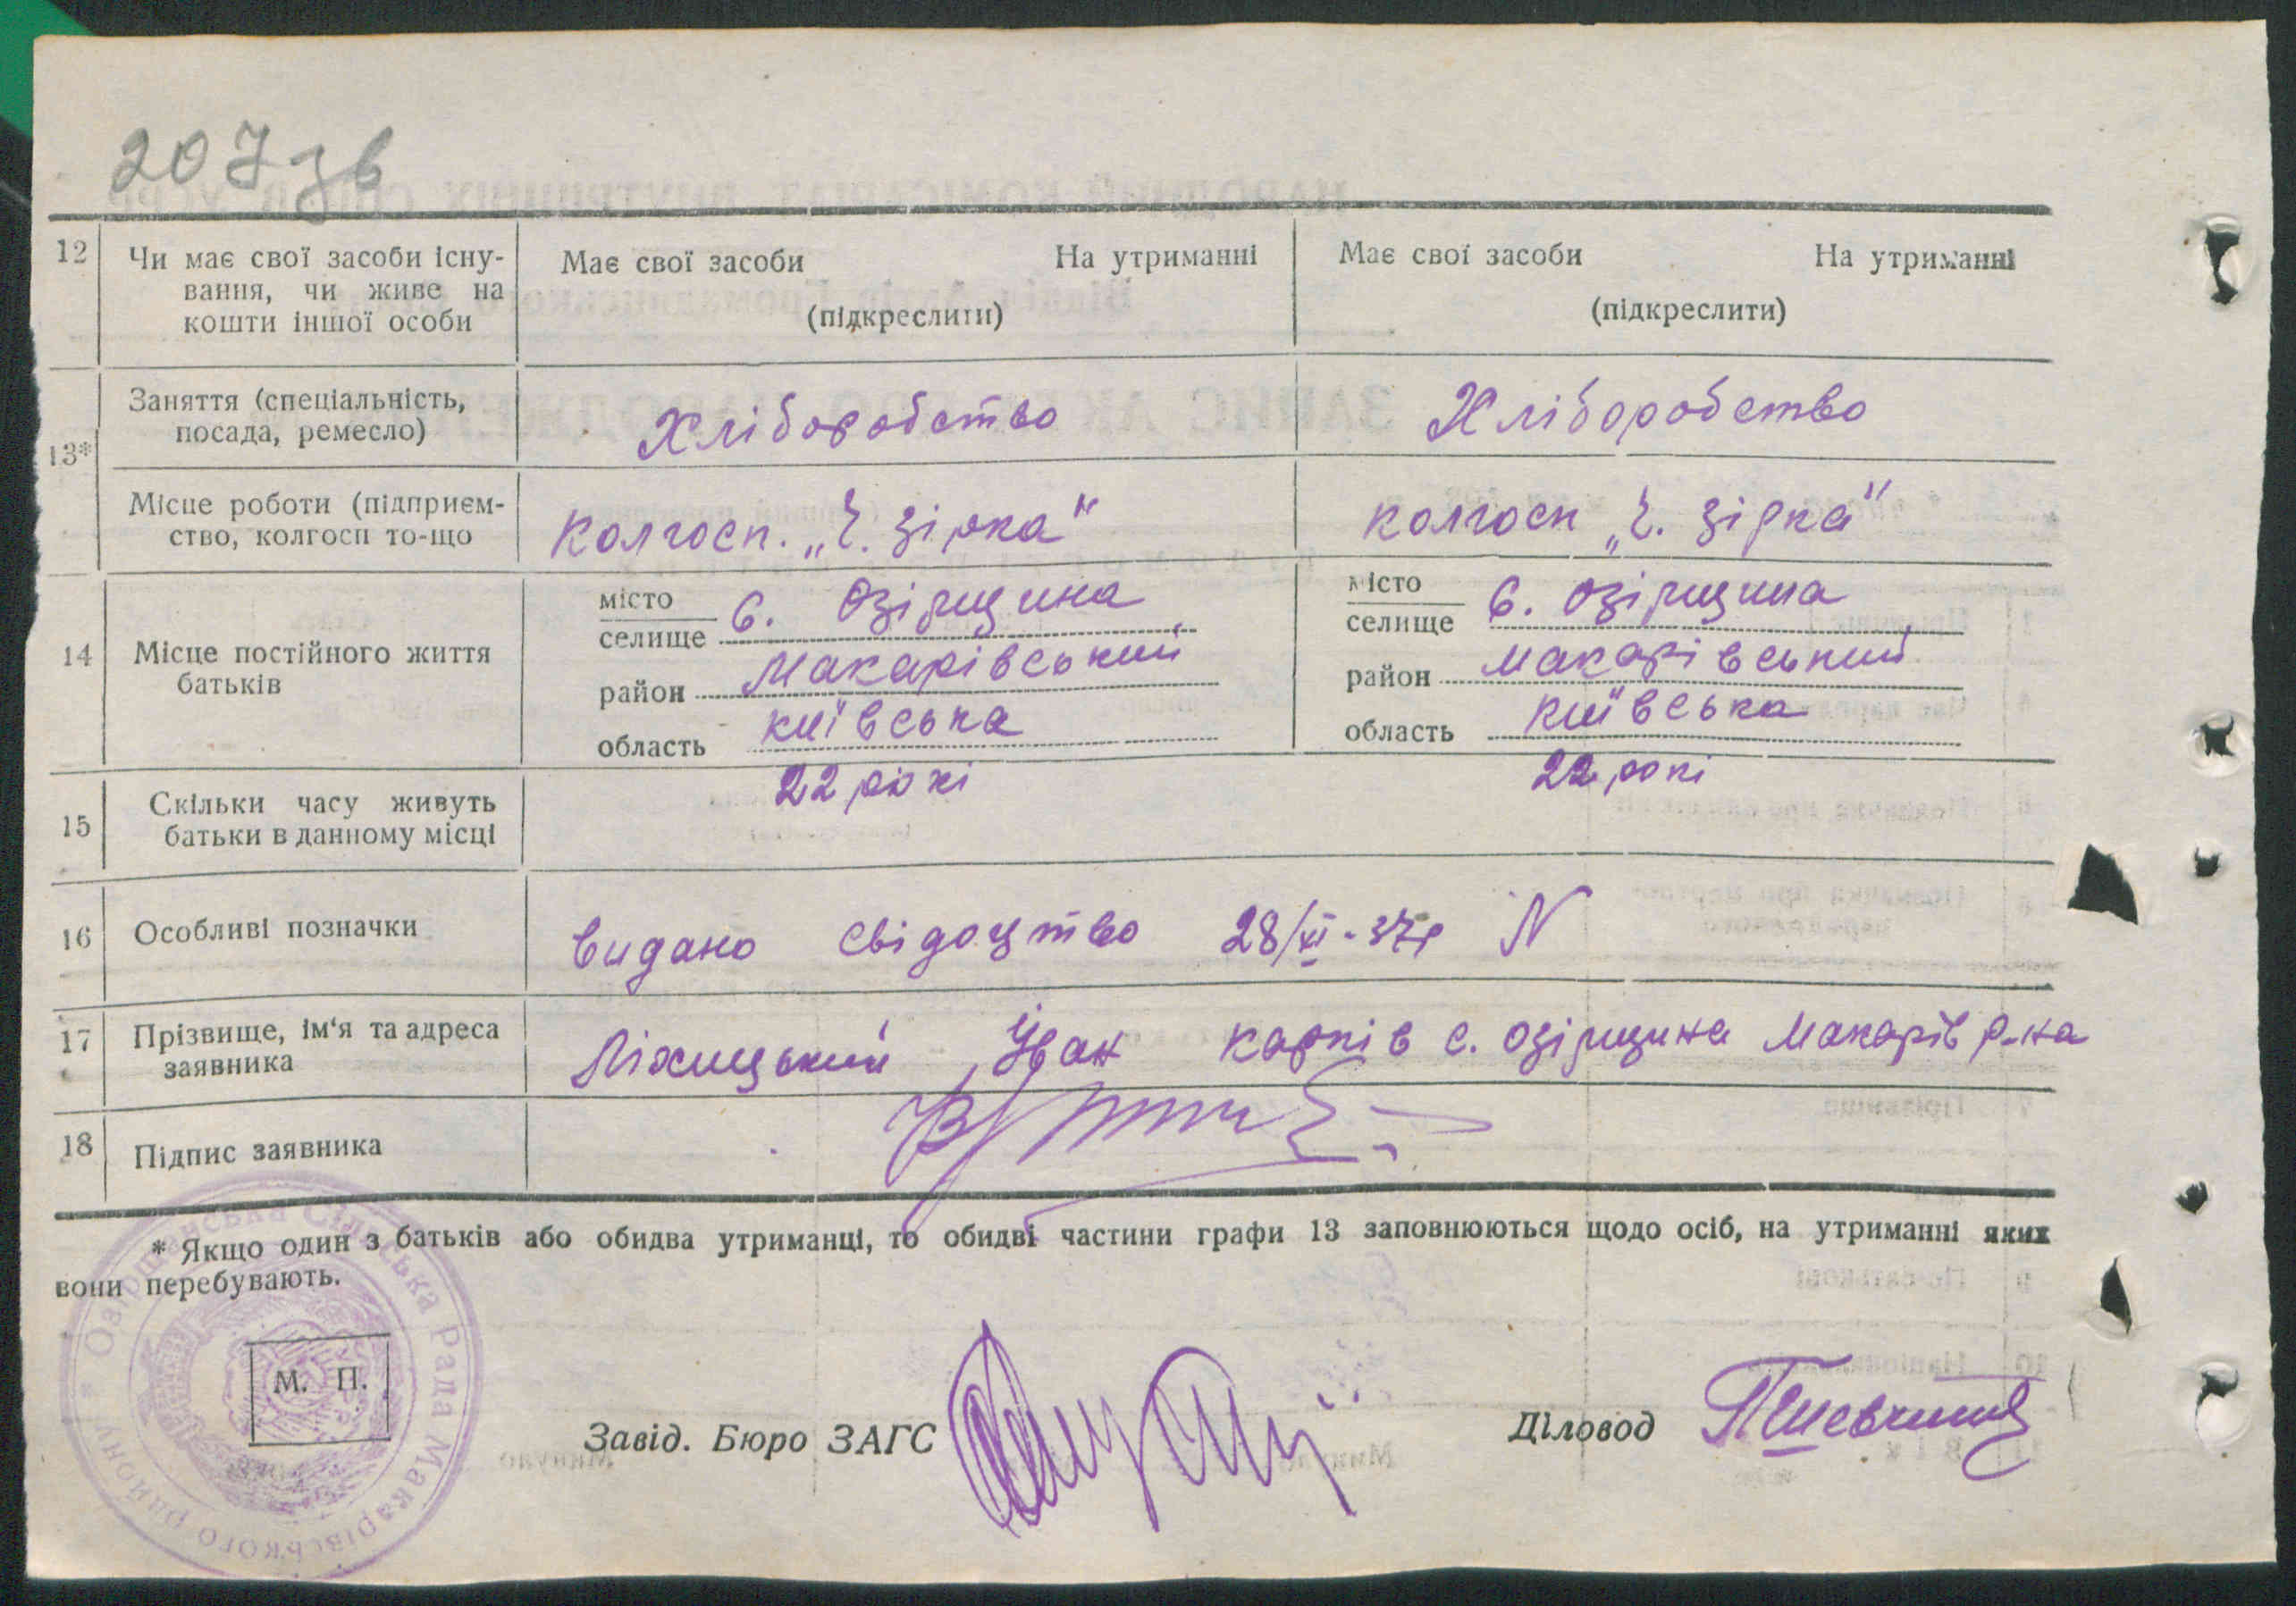 207 зв
12 Чи має свої засоби існу-
вання, чи живе на
кошти іншої особи
Має свої засоби На утриманні
(підкреслити)
Має свої засоби На утриманні
(підкреслити)
13*
Заняття (спеціальність,
посада, ремесло)
Хліборобство
Хліборобство
Місце роботи (підприєм-
ство, колгосп то-що
колгосп. „Ч. зірка"
колгосп „Ч. зірка"
14 Місце постійного життя
батьків
місто
селище с. Озірщина
район Макарівський
область київська
місто
селище с. Озірщина
район Макарівський
область київська
15 Скільки часу живуть
батьки в данному місці
22 рокі
22 рокі
16 Особливі позначки
видано свідоцтво 28/XI-37р N
17 Прізвище, ім'я та адреса
заявника
Ліхицький Іван карпів с. Озірщина Макарів р-на
18 Підпис заявника
* Якщо один з батьків або обидва утриманці, то обидві частини графи 13 заповнюються щодо осіб, на утриманні яких
вони перебувають.
М. П.
Сільська Рада Макарівського району
Завід. Бюро ЗАГС
Діловод